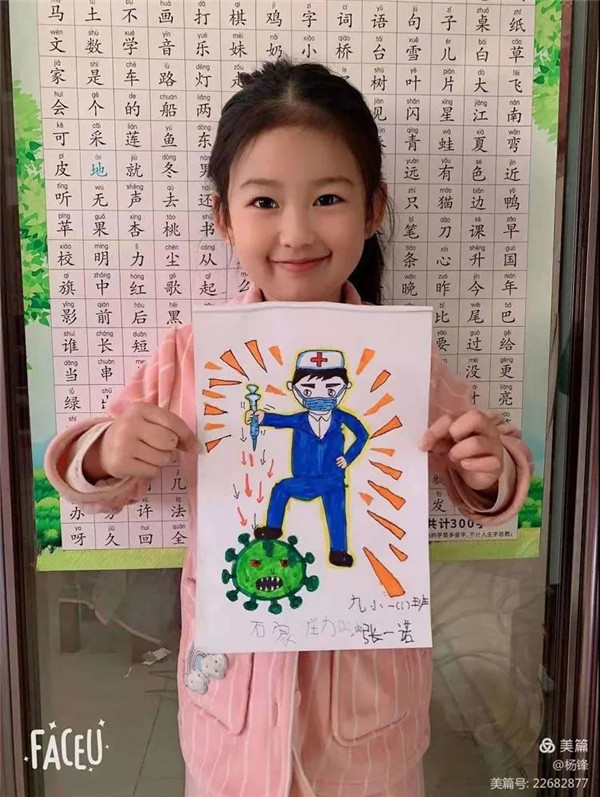 马 土 不 画 打 棋 鸡 字 词 语 句 子 桌 纸
文 数 学 音 乐 妹 奶 小 桥 台 雪 儿 白 草
家 是 车 路 灯 走 树 叶 片 大 飞
会 个 的 船 两 见 闪 星 江 南
可 采 莲 鱼 东 青 蛙 夏 弯
皮 地 就 冬 男 远 有 色 近
听 无 声 去 还 只 猫 边 鸭
苹 果 杏 桃 书 笔 刀 课 早
校 明 力 尘 从 条 心 升 国
旗 中 红 歌 起 么 晚 昨 今 年
影 前 后 黑 比 尾 巴
谁 长 短 要 过 给
当 串 没 更
绿 亮
几 发
办 许 法 共计300
呀 久 回 全
九小一(1)班
张一诺
FACEU
美篇
@杨锋
美篇号: 22682877